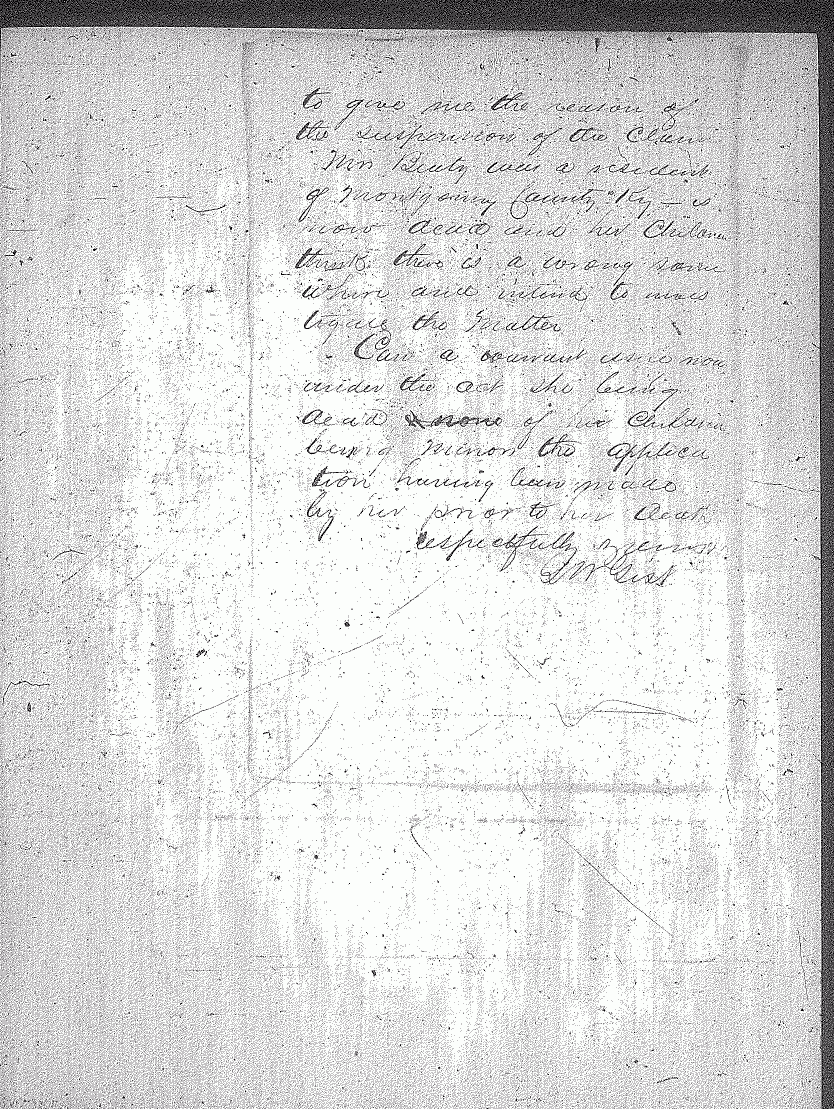 to give me the reason of
the suspension of the Claim
Mrs Beaty was a resident
of Montgomery County Ky — is
now dead and her Children
think there is a wrong some
where and intend to inves
tigate the Matter
Can a warrant issue now
under the act she being
dead & none of her Children
being minors the applica
tion having been made
by her prior to her death
respectfully
W Gist